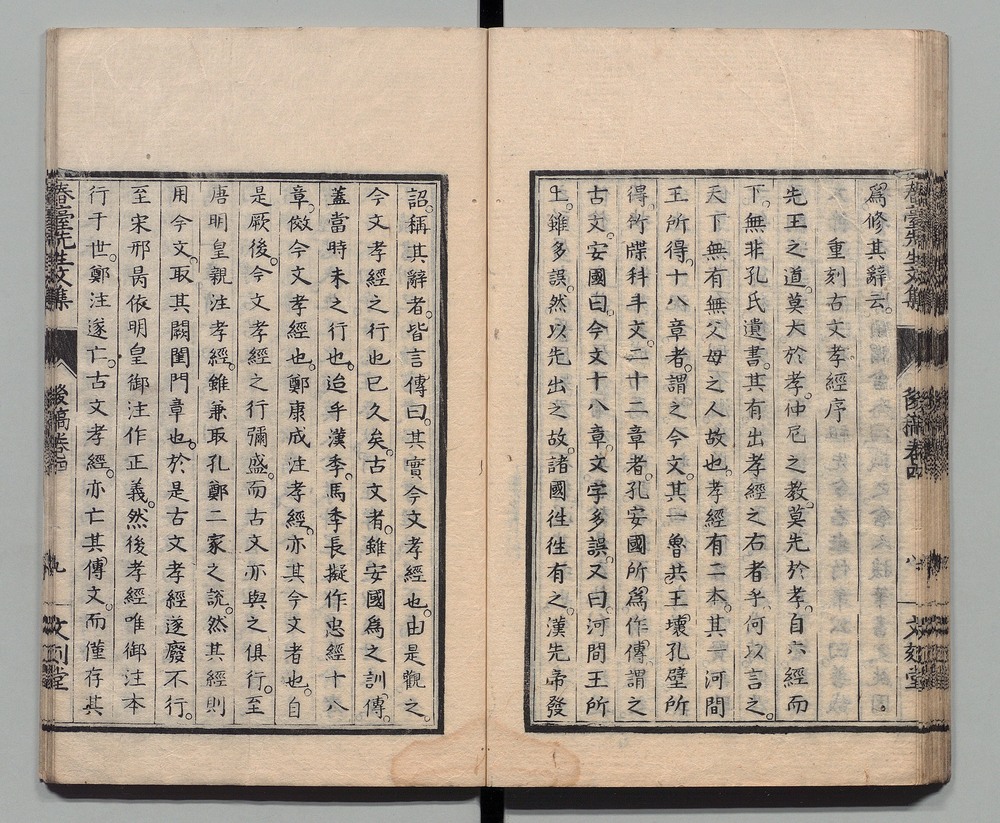 爲修其辭云。
重刻古文孝經序
先王之道。莫大於孝。仲尼之教。莫先於孝。自六經而
下。無非孔氏遺書。其有出孝經之右者乎。何以言之。
天下無有無父母之人故也。孝經有二本。其一河間
王所得。十八章者。謂之今文。其一魯共王壞孔壁所
得。竹牒科斗文。二十二章者。孔安國所爲作傳。謂之
古文。安國曰。今文十八章。文字多誤。又曰。河間王所
上。雖多誤。然以先出之故。諸國往往有之。漢先帝發
詔。稱其辭者。皆言傳曰。其實今文孝經也。由是觀之。
今文孝經之行也已久矣。古文者。雖安國爲之訓傳。
蓋當時未之行也。迨乎漢季。馬季長擬作忠經十八
章。倣今文孝經也。鄭康成注孝經。亦其今文者也。自
是厥後。今文孝經之行彌盛。而古文亦與之俱行。至
唐明皇親注孝經。雖兼取孔鄭二家之說。然其經則
用今文。取其闕閨門章也。於是古文孝經遂廢不行。
至宋邢昺依明皇御注作正義。然後孝經唯御注本
行于世。鄭注遂亡。古文孝經。亦亡其傳文。而僅存其
春臺先生文集
後稿卷四
九
文刻堂